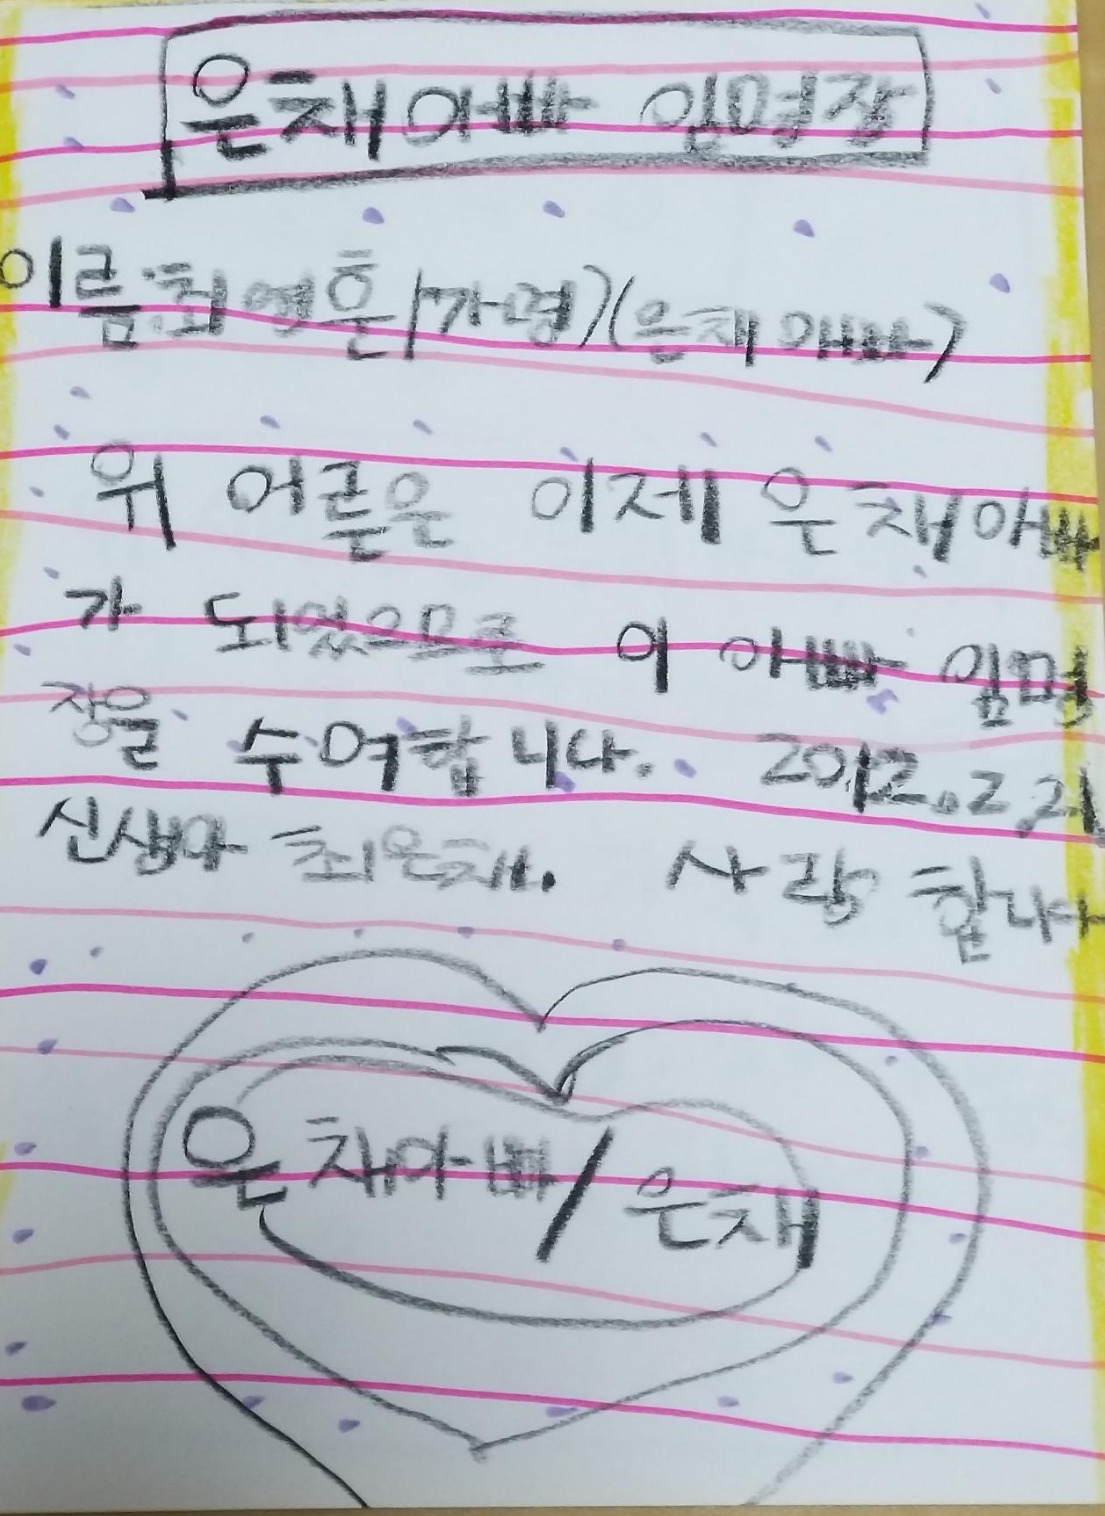 은채아빠 임명장
이름:최영훈/가명)(은채아빠)
위 어른은 이제 은채아빠
가 되었으므로 이 아빠 임명
장을 수여합니다. 2012.2.21
신생아 최은채. 사랑합니다
은채아빠/은채